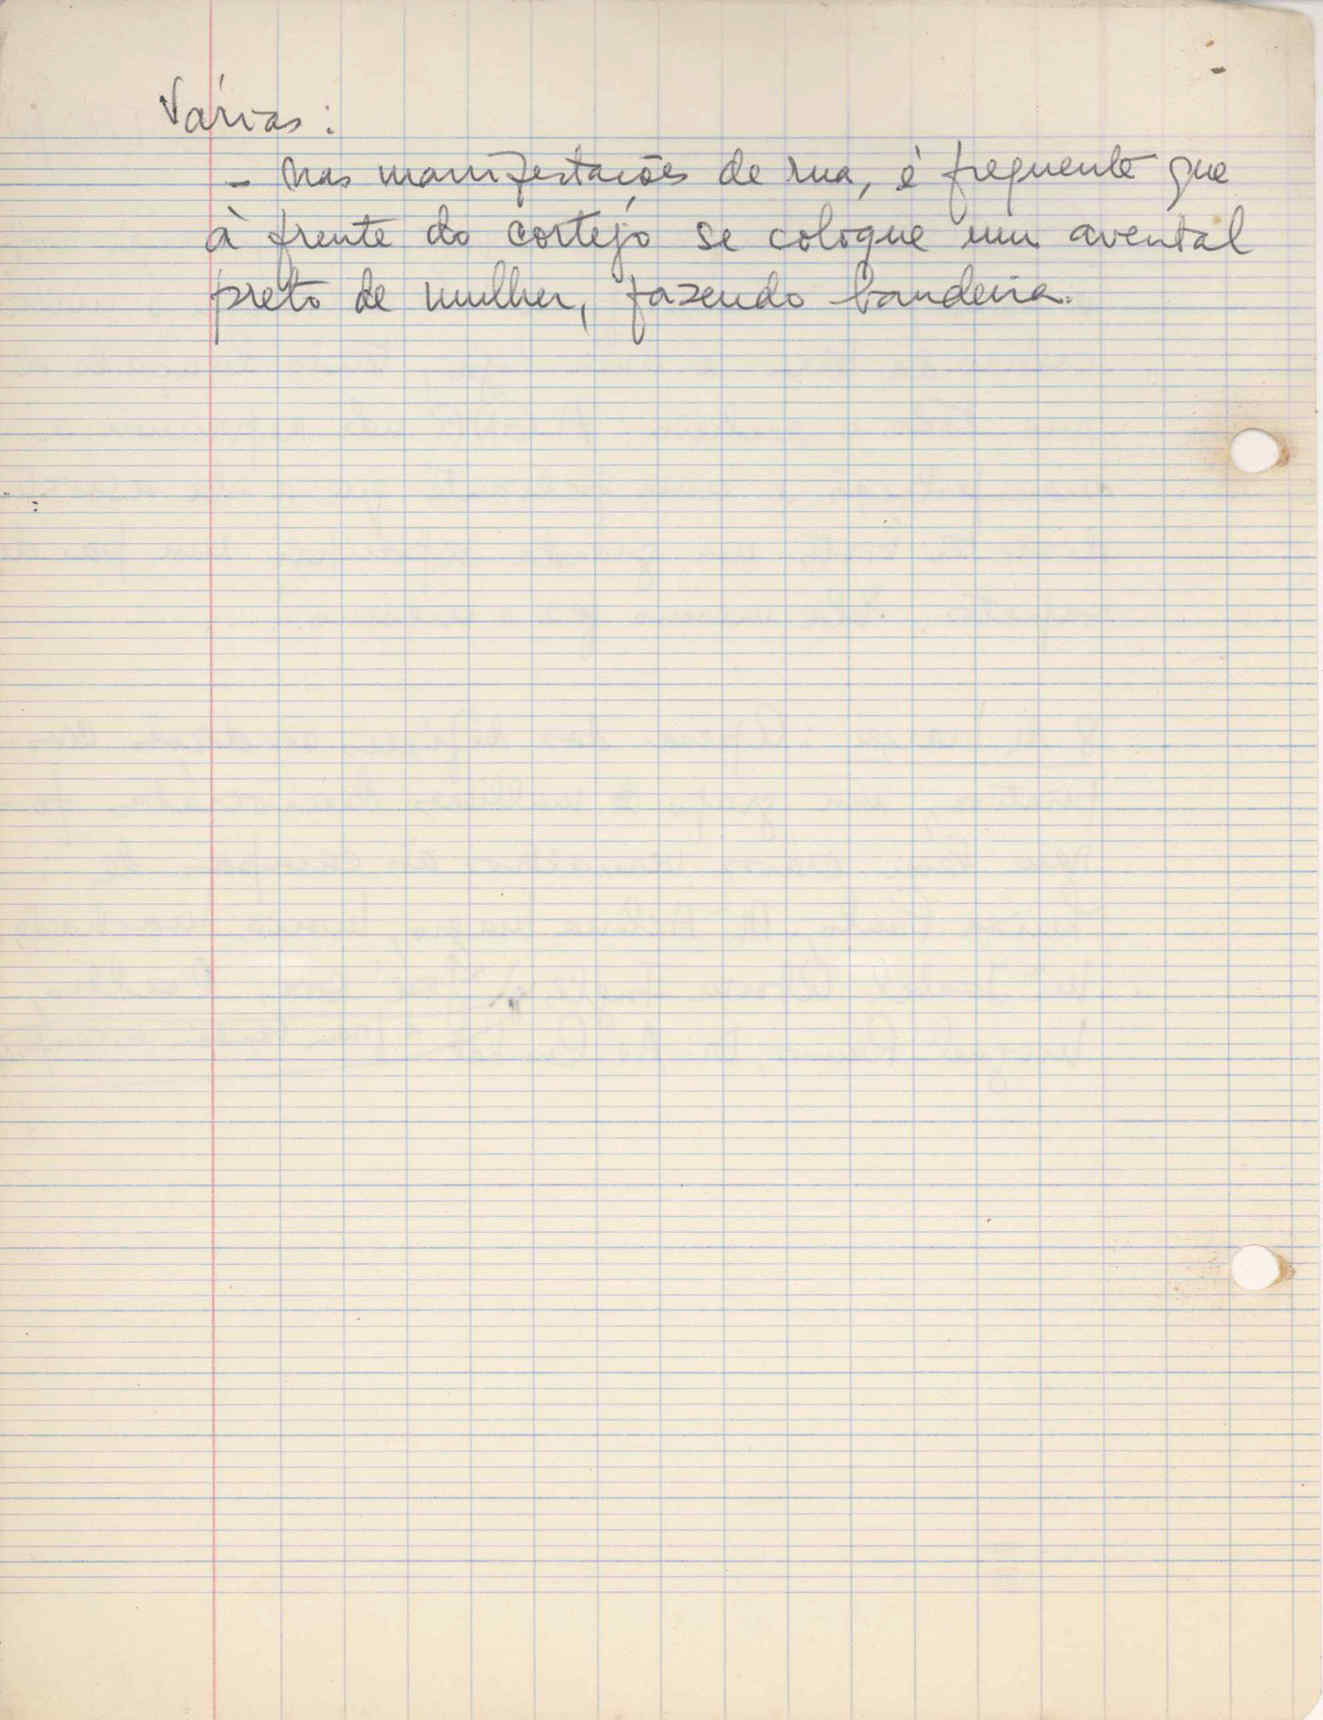 Várias:
- Nas manifestações de rua, é frequente que
à frente do cortejo se coloque um avental
preto de mulher, fazendo bandeira.